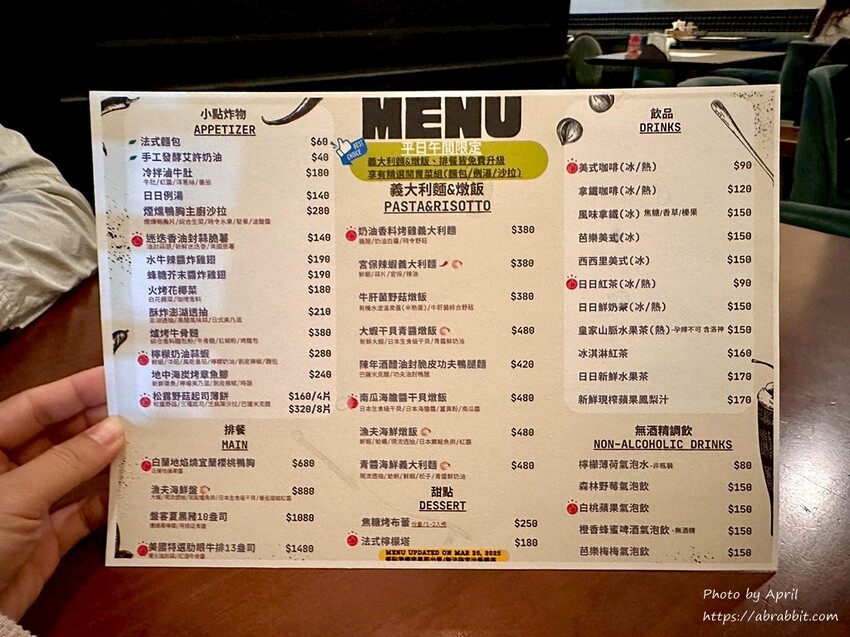 小點炸物
APPETIZER
法式麵包 $60
手工發酵艾許奶油 $40
冷拌滷牛肚 $180
日日例湯 $140
煙燻鴨胸主廚沙拉 $280
迷迭香油封蒜脆薯 $140
水牛辣醬炸雞翅 $190
蜂糖芥末醬炸雞翅 $190
火烤花椰菜 $180
酥炸澎湖透抽 $210
爐烤牛骨髓 $380
檸檬奶油蒜蝦 $280
地中海炭烤章魚腳 $240
松露野菇起司薄餅 $160/4片
$320/8片
排餐
MAIN
白蘭地焰燒宜蘭櫻桃鴨胸 $680
漁夫海鮮盤 $880
盤客夏黑豬10盎司 $1080
美國特選肋眼牛排13盎司 $1480
MENU
BEST CHOICE
平日午間限定
義大利麵&燉飯、排餐皆免費升級
享有精選開胃菜組(麵包/例湯/沙拉)
義大利麵&燉飯
PASTA&RISOTTO
奶油香料烤雞義大利麵 $380
宮保辣蝦義大利麵 $380
牛肝菌野菇燉飯 $380
大蝦干貝青醬燉飯 $480
陳年酒醋油封脆皮功夫鴨腿麵 $420
南瓜海膽醬干貝燉飯 $480
漁夫海鮮燉飯 $480
青醬海鮮義大利麵 $480
甜點
DESSERT
焦糖烤布蕾 份量/1-2人份 $250
法式檸檬塔 $180
MENU UPDATED ON MAR 20, 2025
飲品
DRINKS
美式咖啡(冰/熱) $90
拿鐵咖啡(冰/熱) $120
風味拿鐵(冰) 焦糖/香草/榛果 $150
芭樂美式(冰) $150
西西里美式(冰) $150
日日紅茶(冰/熱) $90
日日鮮奶茶(冰/熱) $150
皇家山脈水果茶(熱)-孕婦不可 含洛神 $150
冰淇淋紅茶 $160
日日新鮮水果茶 $170
新鮮現榨蘋果鳳梨汁 $170
無酒精調飲
NON-ALCOHOLIC DRINKS
檸檬薄荷氣泡水-非瓶裝 $80
森林野莓氣泡飲 $150
白桃蘋果氣泡飲 $150
橙香蜂蜜啤酒氣泡飲-無酒精 $150
芭樂梅梅氣泡飲 $150
Photo by April
https://abrabbit.com